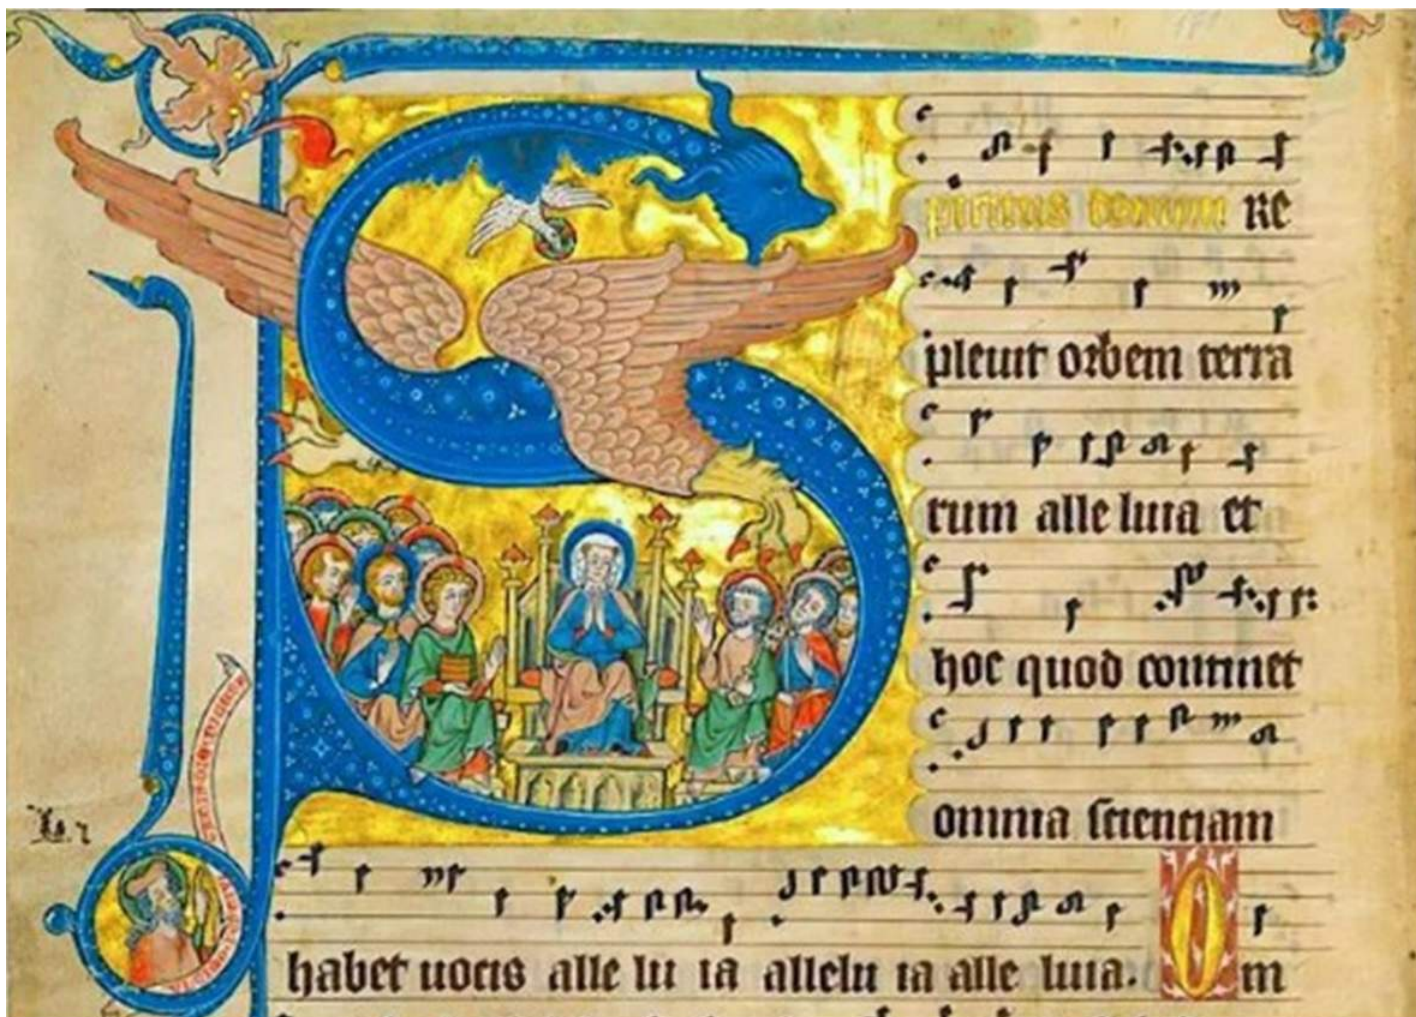 Spiritus domini re
pleuit orbem terra
rum alle luia et
hoc quod continet
omnia scienciam
habet uocis alle lu ia allelu ia alle luia. Om